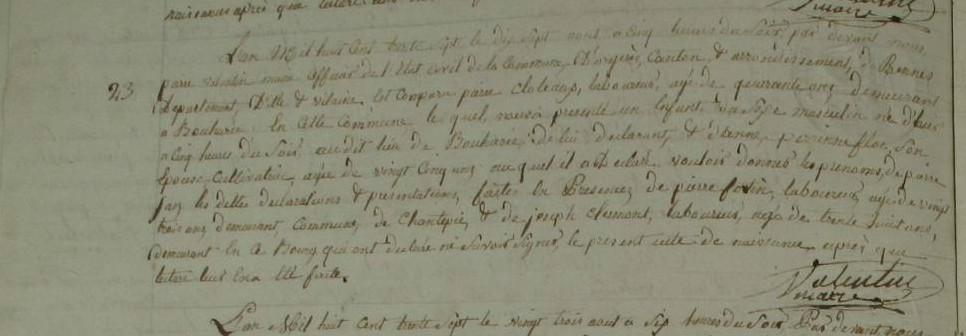 naissance après que lecture
maire
L'an Mil huit Cent trente sept le dix sept aout a Cinq heures du Soir, par devant nous
23
pierre valentin maire officier de l'état civil de la Commune D'orgeres, Canton, & arrondissement, de Rennes
Departement D'ille & vilaine. Est Comparu pierre Coteaux, laboureur, agé de quarante ans demeurant
a Boularie En Cette Commune le quel, nous a presenté un Enfant, du Sexe masculin né d'hier
a Cinq heures du Soir, au dit lieu de Boularie, de lui declarant, & d'etienne, perrinne floc, Son
Epouse Cultivatrice, agée de vingt Cinq ans au quel il a Déclaré vouloir donner les prenoms, de pierre
jan, les dittes declarations & presentations, faites En Presence, de pierre fotin, laboureur, agé de vingt
trois ans, demeurant Commune, de Chantepie, & de joseph Clement, laboureur, agé de trente huit ans,
demeurant En Ce Bourg qui ont declaré ne Savoir Signer, le present acte de naissance, après que
lecture leur En a été faite.
Valentin
maire
L'an Mil huit Cent trente Sept le vingt trois aout a Sep heures du Soir Par devant nous